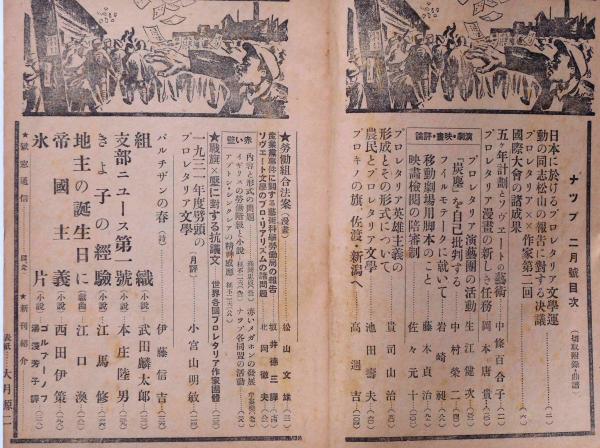 ナツプ 二月號目次
(切取附録・曲譜)
日本に於けるプロレタリア文學運
動の同志松山の報告に對する決議
プロレタリア××作家第二回
國際大會の諸成果
五ヶ年計劃とソヴエートの藝術 中條百合子
プロレタリア漫畫の新しき任務 岡本唐貴
演劇・映畫・評論
プロレタリア演藝團の活動 生江健次
『炭塵』を自己批判する 中村榮二
フイルモテークに就いて 岩崎昶
移動劇場用脚本のこと 藤木貞治
映畫檢閲の陪審制 佐々元十
プロレタリア英雄主義の
形成とその形式について 貴司山治
農民とプロレタリア文學 池田壽夫
プロキノの旗 佐渡・新潟へ 高週吉
★勞働組合法案(漫畫) 松山文雄
産業黨事件に關する藝術科學勞働局の報告 槇井徳三譯
ソヴエート文學のプロ・リアリズムの諸問題 北岡徹夫
赤い壁
内容と形式の問題
赤いメガホンの發展
イギリスの勞働階級と小説
ナツプ各同盟の活動
アプトン・シンクレアの精神感應
★戰旗×壓に對する抗議文 世界各國プロレタリア作家團體
一九三一年度劈頭の
プロレタリア文學(月評) 小宮山明敏
パルチザンの春(詩) 伊藤信吉
組織(小説) 武田麟太郎
支部ニュース第一號(小説) 本庄陸男
きよ子の經驗(小説) 江馬修
地主の誕生日に(戲曲) 江口渙
帝國主義(小説) 西田伊策
氷片(小説) ゴルブーノフ
湯淺芳子譯
★獄窓通信
★新刊紹介
表紙 大月源二